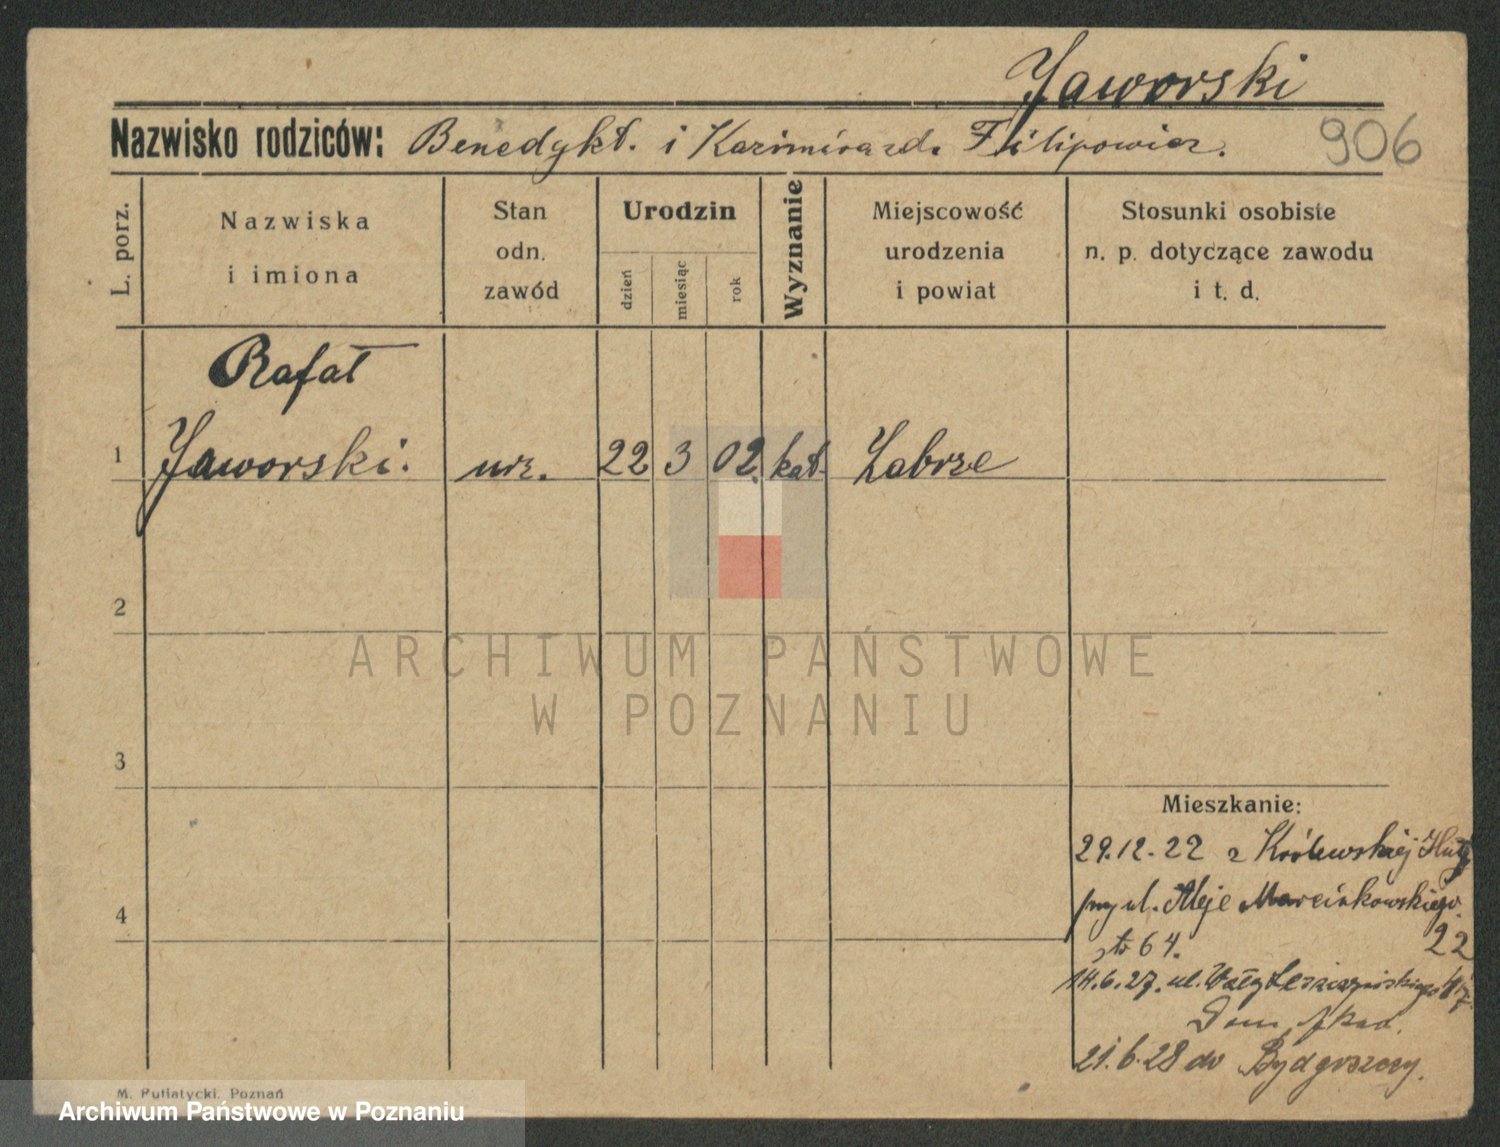 Jaworski
Nazwisko rodziców: Benedykt. i Kazimira zd. Filipowicz.
906
L. porz.
Nazwiska
i imiona
Stan
odn.
zawód
Urodzin
dzień
miesiąc
rok
Wyznanie
Miejscowość
urodzenia
i powiat
Stosunki osobiste
n. p. dotyczące zawodu
i t. d.
Rafał
1 Jaworski. urz. 22 3 02. kat. Zabrze
2
ARCHIWUM PAŃSTWOWE
W POZNANIU
3
Mieszkanie:
29.12.22 z Królewskiej Huty
przy ul. Aleje Marcinkowskiego
22
4
64.
14.6.27. ul. Wały Leszczyńskiego
Dom Akad.
21.6.28 do Bydgoszczy.
M. Putiatycki, Poznań
Archiwum Państwowe w Poznaniu